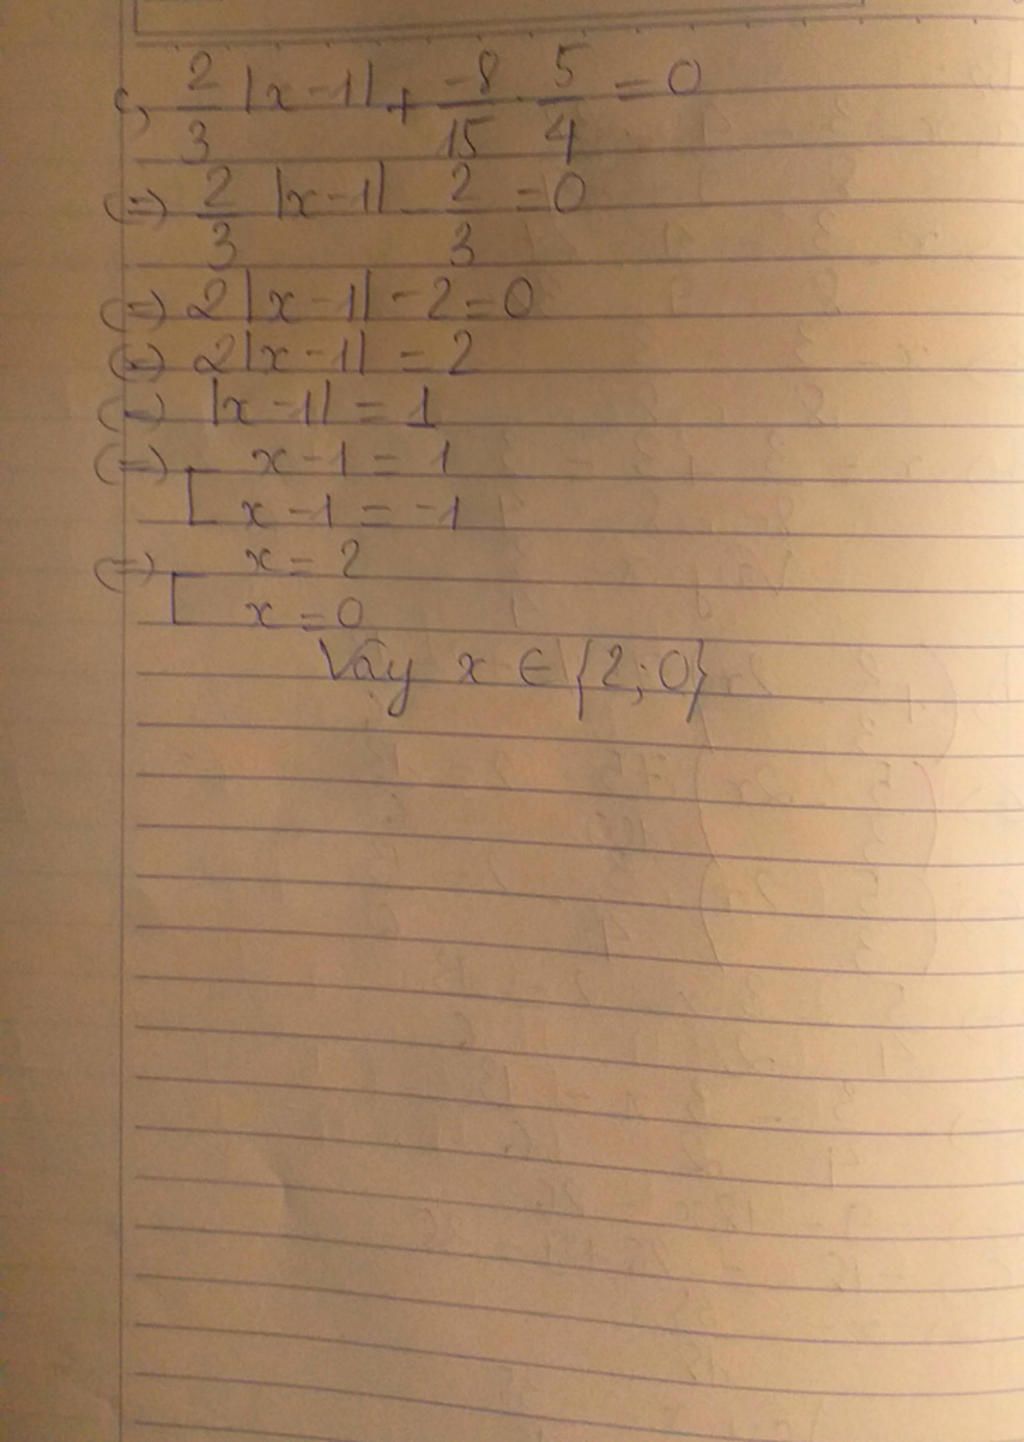 c, 2/3 |x-1| + -8/15 . 5/4 = 0
(=) 2/3 |x-1| - 2/3 = 0
(=) 2|x-1| - 2 = 0
(=) 2|x-1| = 2
(=) |x-1| = 1
(=) [ x-1 = 1
x-1 = -1
(=) [ x = 2
x = 0
Vậy x ∈ {2;0}